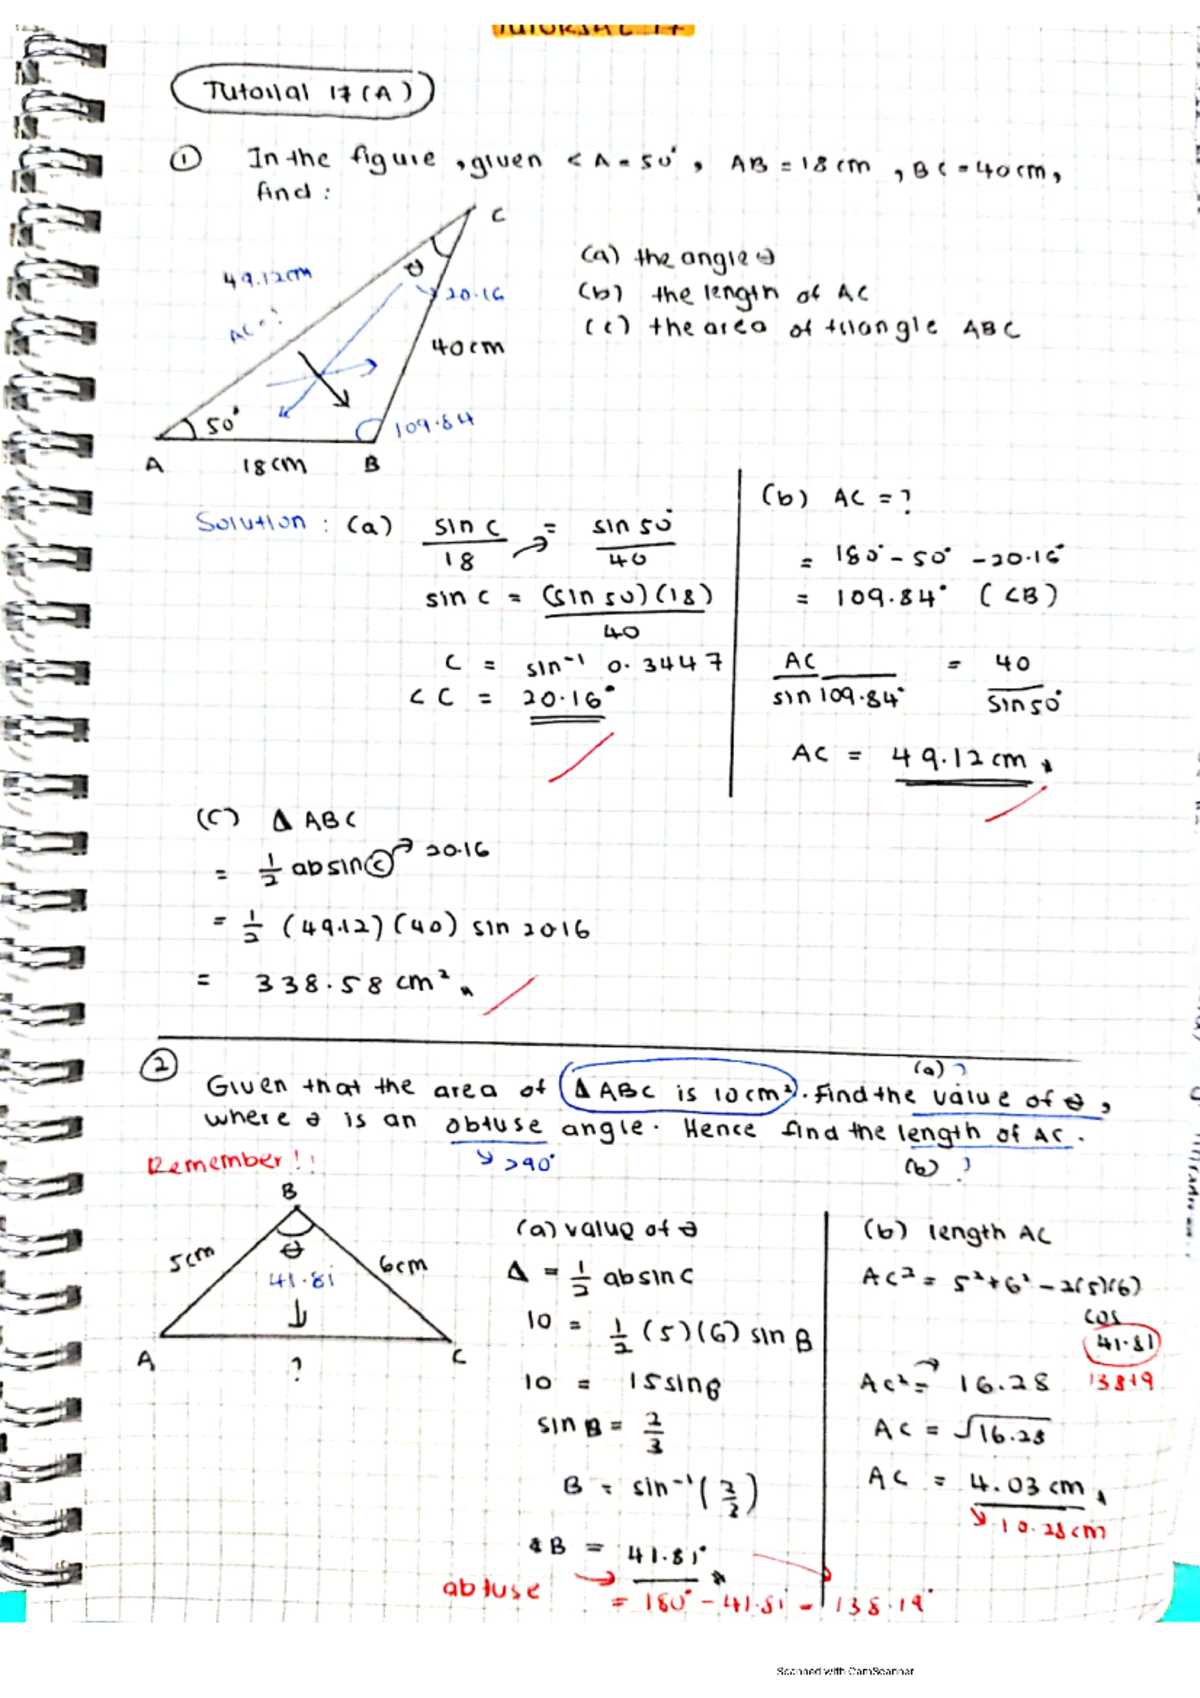 TUTORIAL 17
Tutorial 17 (A)
① In the figure, given < A = 50°, AB = 18cm, BC = 40cm,
find :
C
θ
49.12cm
20.16
AC = ?
40cm
50°
109.84
A 18cm B
(a) the angle θ
(b) the length of AC
(c) the area of triangle ABC
Solution : (a) sin C / 18 = sin 50° / 40
sin C = (sin 50)(18) / 40
C = sin⁻¹ 0.3447
< C = 20.16°
(b) AC = ?
= 180° - 50° - 20.16°
= 109.84° (<B)
AC / sin 109.84° = 40 / sin 50°
AC = 49.12cm
(c) Δ ABC
= 1/2 ab sin C → 20.16
= 1/2 (49.12)(40) sin 20.16
= 338.58 cm²
②
(a) ?
Given that the area of Δ ABC is 10cm². Find the value of θ,
where θ is an obtuse angle. Hence find the length of AC.
Remember!!
>90°
(b) ?
B
5cm
θ
6cm
41.81
A ? C
(a) value of θ
Δ = 1/2 ab sin C
10 = 1/2 (5)(6) sin B
10 = 15 sin B
sin B = 2/3
B = sin⁻¹ (2/2)
< B = 41.81°
obtuse → = 180° - 41.81 = 138.19°
(b) length AC
AC² = 5² + 6² - 2(5)(6)
cos
41.81
AC² = 16.28
138.19
AC = √16.28
AC = 4.03 cm
10.28cm
Scanned with CamScanner